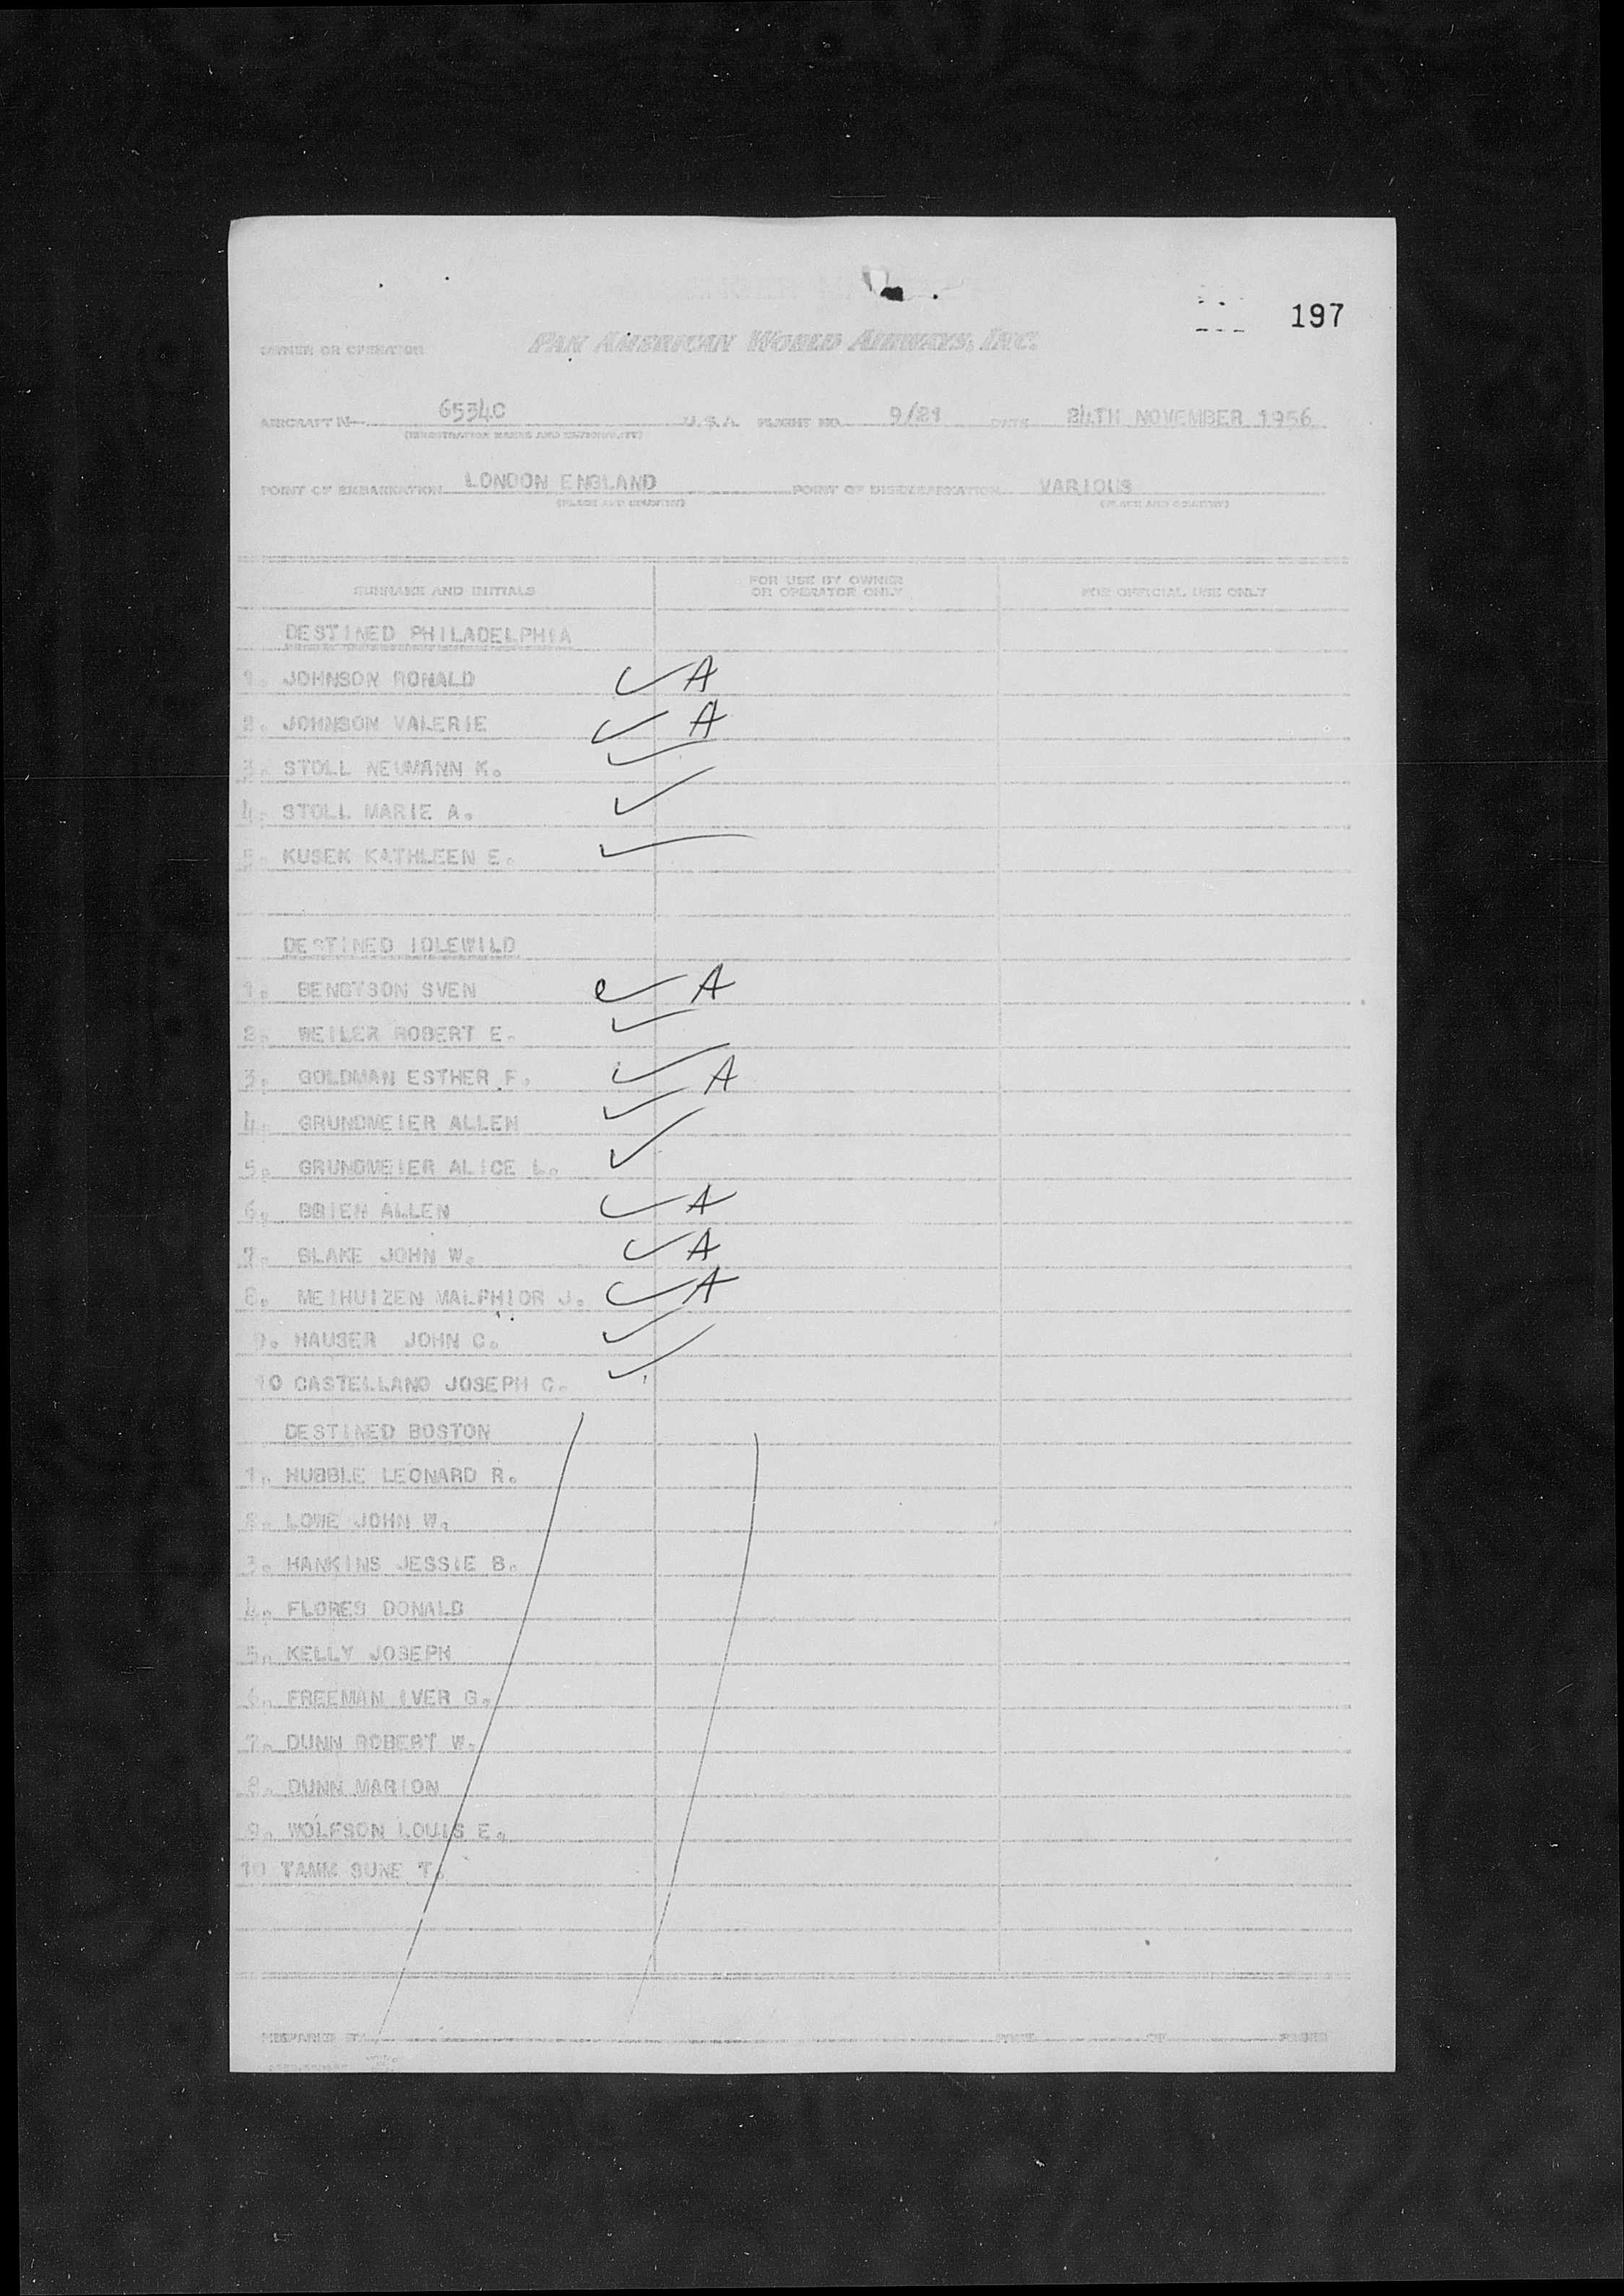 197
OWNER OR OPERATOR PAN AMERICAN WORLD AIRWAYS, INC.
AIRCRAFT N- 6534C U.S.A. FLIGHT NO. 9/21 DATE 24TH NOVEMBER 1956
(REGISTRATION MARKS AND NATIONALITY)
POINT OF EMBARKATION LONDON ENGLAND POINT OF DISEMBARKATION VARIOUS
(PLACE AND COUNTRY) (PLACE AND COUNTRY)
SURNAME AND INITIALS FOR USE BY OWNER OR OPERATOR ONLY FOR OFFICIAL USE ONLY
DESTINED PHILADELPHIA
1. JOHNSON RONALD ✓ A
2. JOHNSON VALERIE ✓ A
3. STOLL NEUMANN K. ✓
4. STOLL MARIE A. ✓
5. KUSEK KATHLEEN E. ✓
DESTINED IDLEWILD
1. BENGTSON SVEN ✓ A
2. WEILER ROBERT E. ✓
3. GOLDMAN ESTHER F. ✓ A
4. GRUNDMEIER ALLEN ✓
5. GRUNDMEIER ALICE L. ✓
6. BRIEN ALLEN ✓ A
7. BLAKE JOHN W. ✓ A
8. MEIHUIZEN MALPHIOR J. ✓ A
9. HAUSER JOHN C. ✓
10 CASTELLANO JOSEPH C. ✓
DESTINED BOSTON
1. HUBBLE LEONARD R.
2. LOWE JOHN W.
3. HANKINS JESSIE B.
4. FLORES DONALD
5. KELLY JOSEPH
6. FREEMAN IVER G.
7. DUNN ROBERT W.
8. DUNN MARION
9. WOLFSON LOUIS E.
10 TAMM SUNE T.
PREPARED BY PAGE OF PAGES